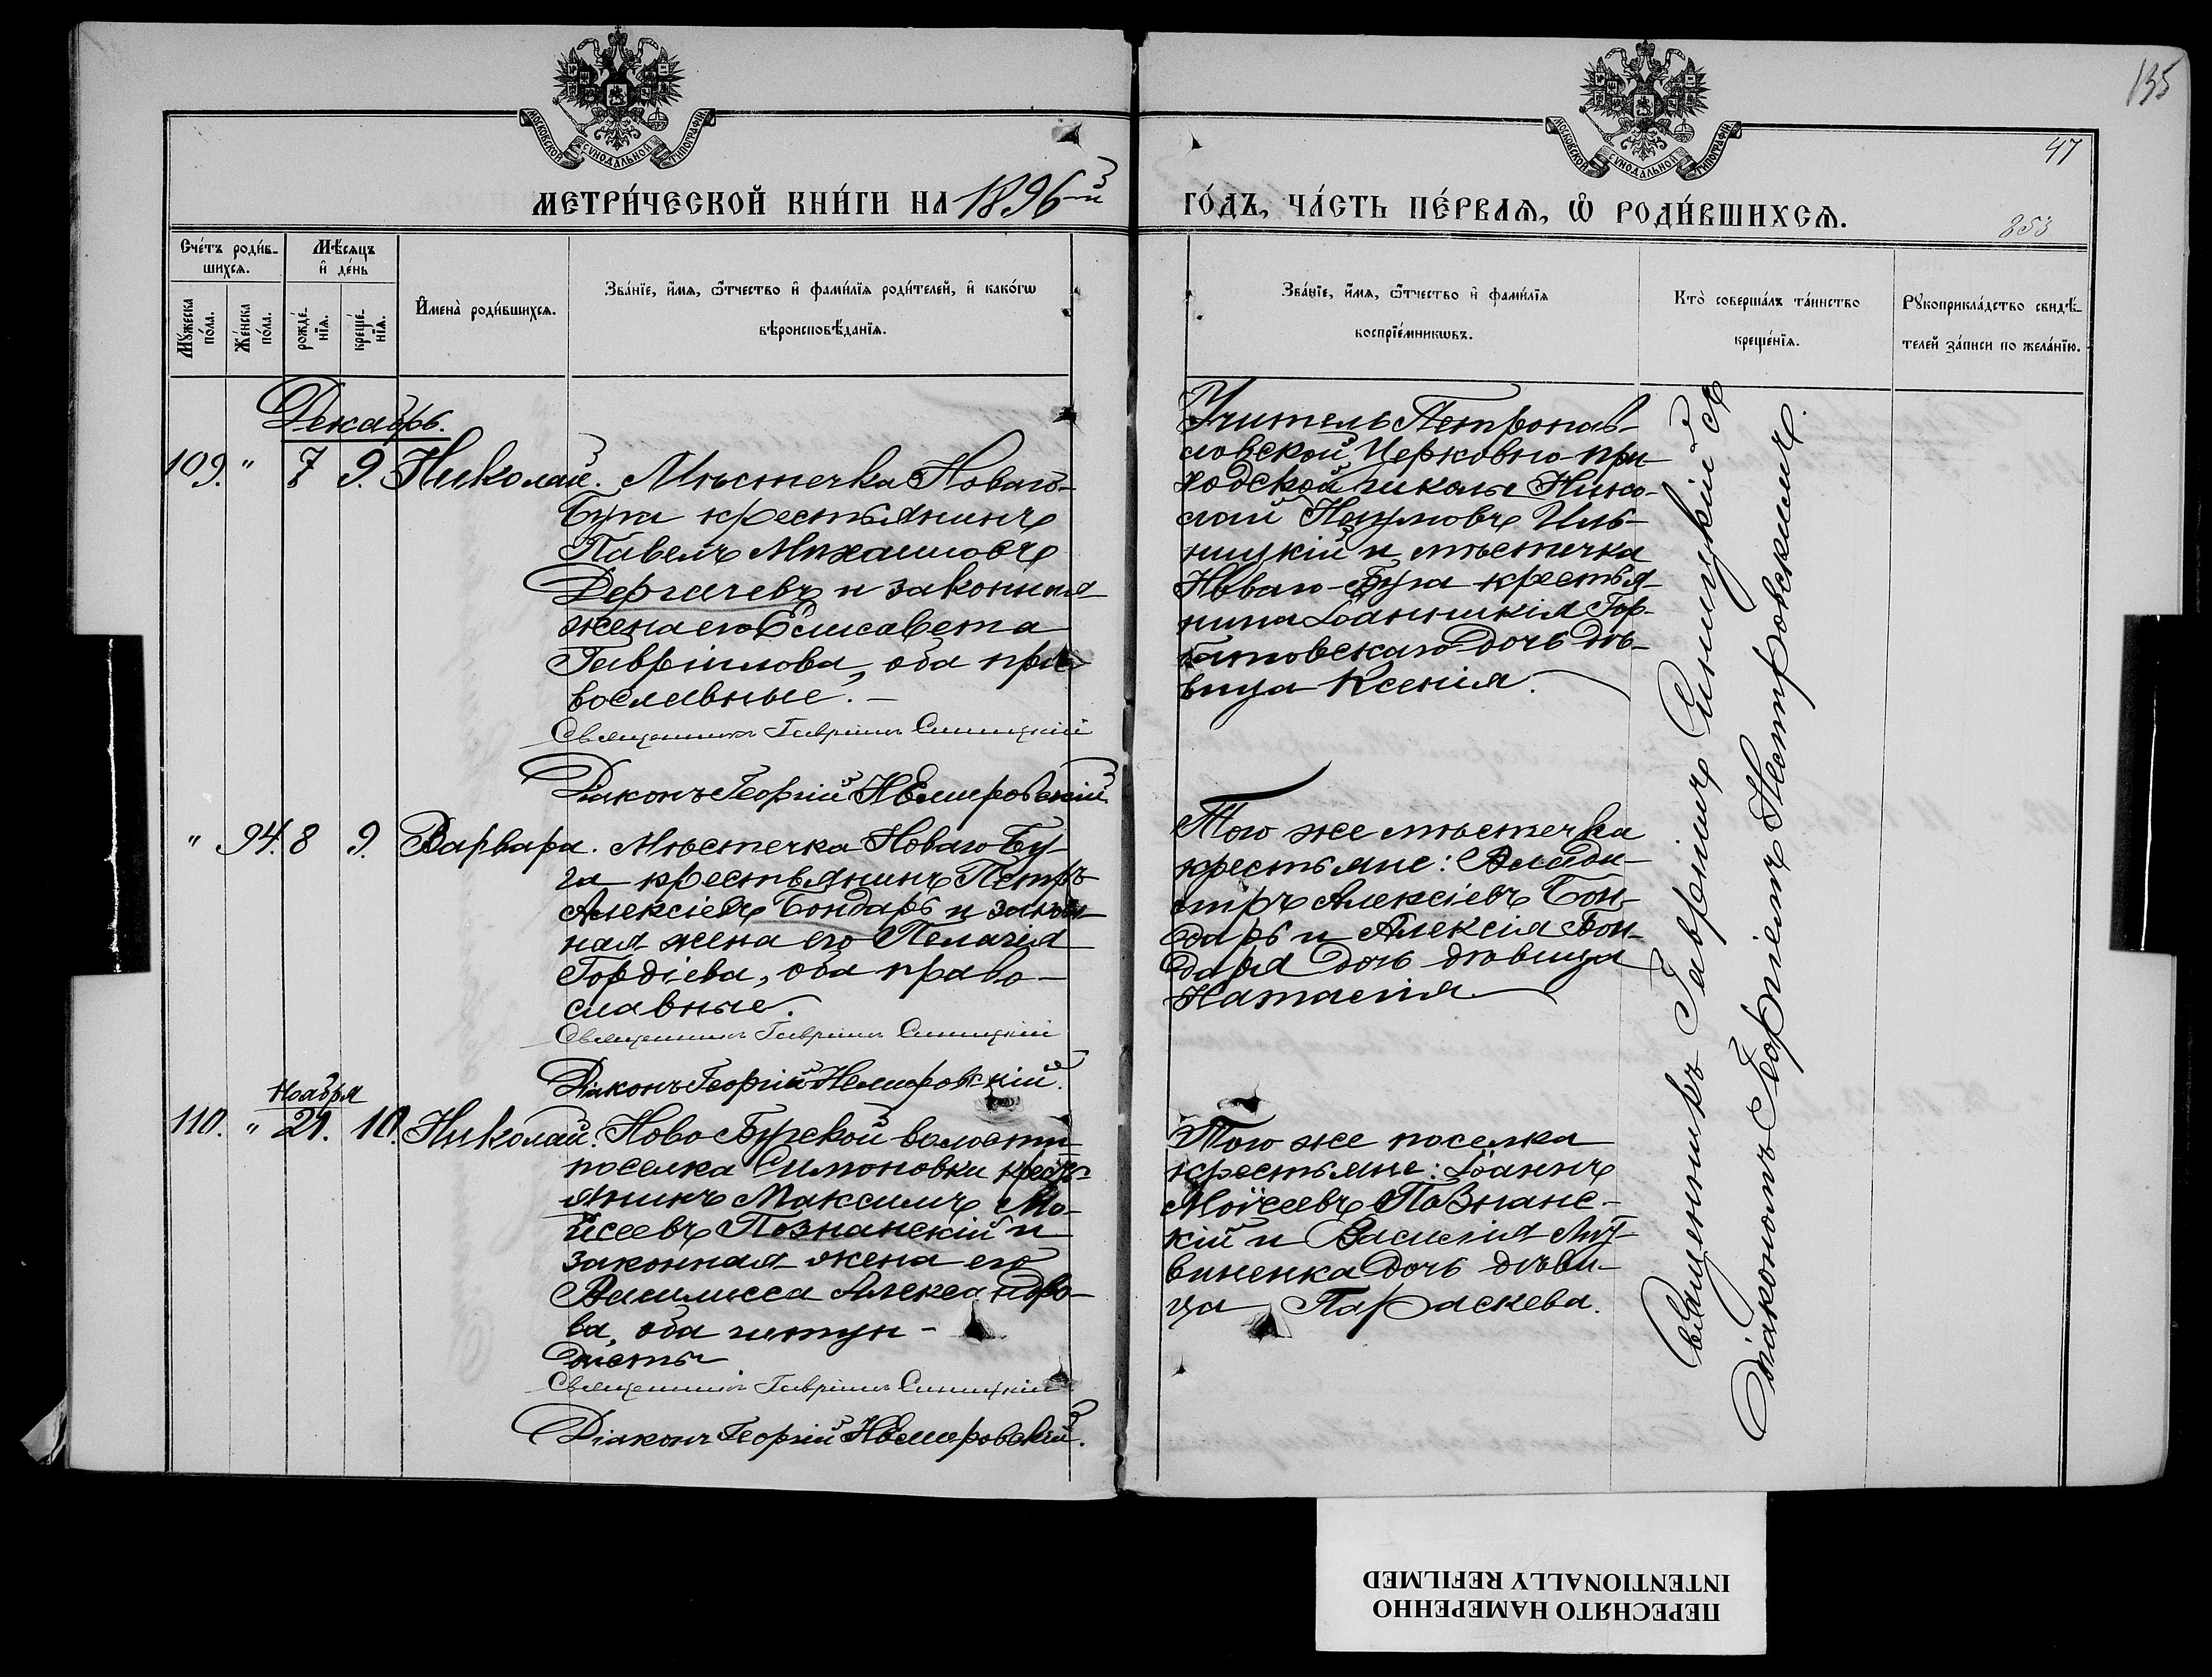 135
47
253
МОСКОВСКОЙ СѴНОДАЛЬНОЙ ТИПОГРАФІИ
МОСКОВСКОЙ СѴНОДАЛЬНОЙ ТИПОГРАФІИ
МЕТРИ́ЧЕСКОЙ КНИ́ГИ НА 1896-й
ГО́ДЪ, ЧА́СТЬ ПЕ́РВАѦ, Ѽ РОДИ́ВШИХСѦ.
Счéтъ роди́в-
шихсѧ.
Мꙋ́жеска
по́ла.
Же́нска
по́ла.
Мѣ́сѧцъ
и҆ де́нь
рожде́-
нїѧ.
креще́-
нїѧ.
И҆мена̀ роди́вшихсѧ.
Зва́нїе, и҆́мѧ, ѻ҆́тчество и҆ фами́лїѧ роди́телей, и҆ како́гѡ
вѣроисповѣ́данїѧ.
Зва́нїе, и҆́мѧ, ѻ҆́тчество и҆ фами́лїѧ
воспрїе́мникѡвъ.
Кто̀ соверша́лъ та́инство
креще́нїѧ.
Рꙋкоприкла́дство свидѣ́-
телей за́писи по жела́нїю.
Декабрь.
109. " 7 9. Николай. Мѣстечка Новаго-
Буга крестьянинъ
Павелъ Михаиловъ
Дергачевъ и законная
жена его Елисавета
Гавріилова, оба пра-
вославные.-
Священникъ Гавріилъ Синицкій
Діаконъ Георгій Немировскій
Учитель Петропав-
ловской Церковно-при
ходской школы Нико-
лай Наумовъ Иль-
ницкій и мѣстечка
Новаго-Буга крестья
нина Іанникія Гор-
батовскаго дочь дѣ-
вица Ксенія.
" 94. 8 9. Варвара. Мѣстечка Новаго Бу-
га крестьянинъ Петръ
Алексіевъ Бондарь и закон-
ная жена его Пелагія
Гордіева, оба право-
славные.
Священникъ Гавріилъ Синицкій
Діаконъ Георгій Немировскій.
Того же мѣстечка
крестьяне: Влади-
міръ Алексіевъ Бон-
дарь и Алексія Бон-
даря дочь дѣвица
Наталія
Ноября
110. " 21. 10. Николай. Ново Бугской волости
поселка Симоновки кресть-
янинъ Максимъ Мо-
исеевъ Познанскій и
законная жена его
Василисса Александро-
ва, оба штун-
дисты
Священникъ Гавріилъ Синицкій
Діаконъ Георгій Немировскій.
Того же поселка
крестьяне: Іоаннъ
Моисеевъ Познанс-
кій и Василія Лит-
виненка дочь дѣви-
ца Параскева.
Священникъ Гавріилъ Синицкій съ
діакономъ Георгіемъ Немировскимъ.
ПЕРЕСНЯТО НАМЕРЕННО
INTENTIONALLY REFILMED